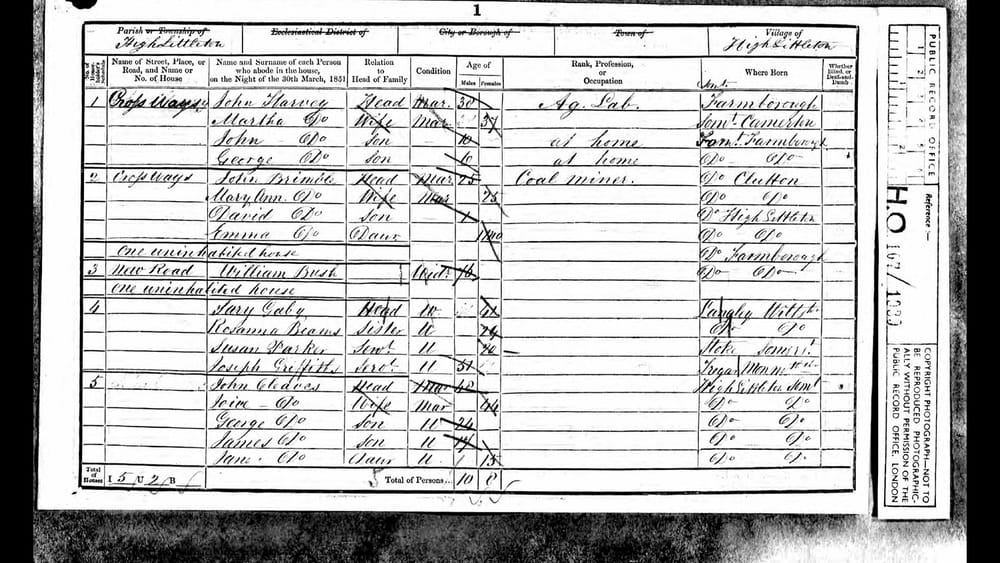 1
Parish or Township of Ecclesiastical District of City or Borough of Town of Village of
High Littleton High Littleton
No. of House- holder's Schedule Name of Street, Place, or Road, and Name or No. of House Name and Surname of each Person who abode in the house, on the Night of the 30th March, 1851 Relation to Head of Family Condition Age of Males Females Rank, Profession, or Occupation Where Born Whether Blind, or Deaf-and-Dumb
1 Cross Ways John Harvey Head Mar. 38 Ag. Lab. Somt. Farmborough
Martha Do Wife Mar 37 Somt. Camerton
John Do Son 10 at home Somt. Farmborough
George Do Son 6 at home Do Do
2 Cross Ways John Brimble Head Mar 25 Coal Miner. Do Clutton
Mary Ann Do Wife Mar 25 Do Do
David Do Son 1 Do High Littleton
Emma Do Daur Do Do
One uninhabited house Do Farmborough
3 New Road William Bush Widr. Do Do
One uninhabited house
4 Gaby Head W Langley Wiltsh
Rosanna Beams Sister U 29 Do Do
Susan Parker Servt. U 20 Stoke Somerst.
Joseph Griffiths Servt. U 51
5 John Cleaves Head Mar 48 High Littleton Somt
Do Wife Mar 44 Do Do
George Do Son U 24 Do Do
James Do Son U Do Do
Jane Do Daur U 13 Do Do
Total of Houses I 5 U 2 B Total of Persons... 10 8
PUBLIC RECORD OFFICE
Reference :-
H.O. 167/
COPYRIGHT PHOTOGRAPH—NOT TO
BE REPRODUCED PHOTOGRAPHIC-
ALLY WITHOUT PERMISSION OF THE
PUBLIC RECORD OFFICE, LONDON